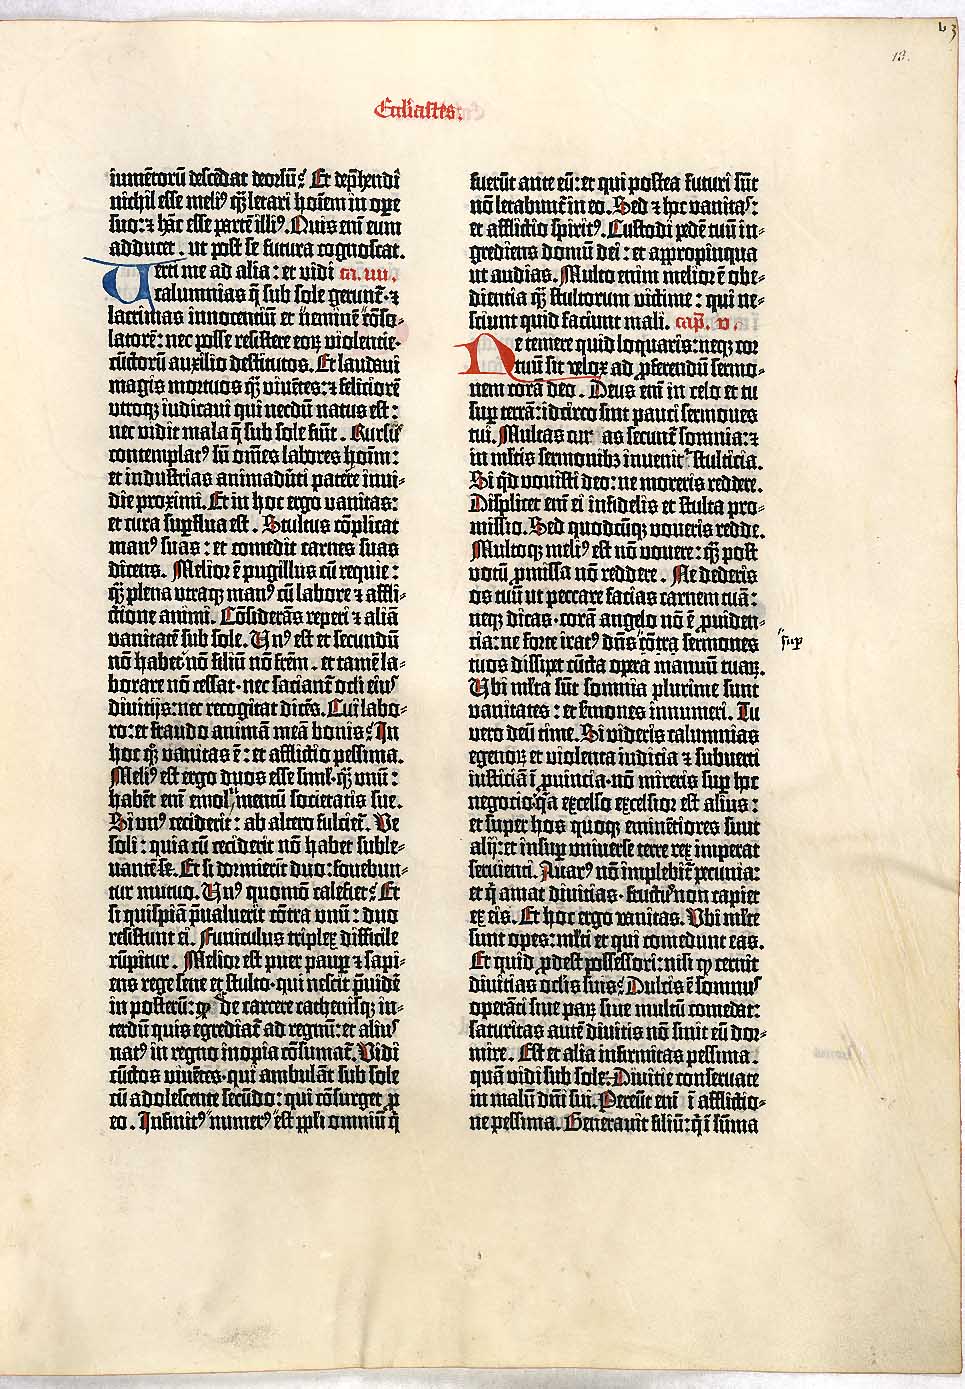 b3
13.
Ecclīastes.
iumētorū descēdat deorsū? Et dep̄hendi
nichil esse meliꝰ q̄ȝ letari hoīem in oꝑe
suo: ⁊ hāc esse partē illiꝰ. Quis eni eum
adducet . ut post se futura cognoscat.
Uerti me ad alia : et vidi ca. iiii.
calumnias q̄ sub sole gerunt̄ · ⁊
lacrimas innocentiū et neminē cōso-
latorē : nec posse resistere eoꝝ violentie·
cūctorū auxilio destitutos. Et laudaui
magis mortuos q̄ȝ viuētes: ⁊ feliciorē
vtroqȝ iudicaui qui necdū natus est :
nec vidit mala q̄ sub sole fiūt . Rursū
contemplatꝰ sū om̄es labores hoīm :
et industrias animaduti patēre inui-
die proximi. Et in hoc ergo vanitas:
et cura suꝑflua est . Stultus cōplicat
manꝰ suas : et comedit carnes suas
dicens. Melior ē pugillus cū requie :
q̄ȝ plena vtraqȝ manꝰ cū labore ⁊ affli-
ctione animi. Cōsiderās reperi ⁊ aliā
vanitatē sub sole. Unꝰ est et secundū
nō habet · nō filiū nō frēm . et tamē la-
borare nō cessat · nec saciant̄ ocli eius
diuitijs: nec recogitat dicēs. Cui labo-
ro: et fraudo animā meā bonis? In
hoc q̄ȝ vanitas ē : et afflictio pessima.
Meliꝰ est ergo duos esse siml̄ · q̄ȝ vnū :
habēt eni emolumentū societatis sue.
Si vnꝰ ceciderit : ab altero fulciet̄. Ve
soli : quia cū ceciderit nō habet suble-
uantē se. Et si dormierit duo: fouebun-
tur mutuo. Unꝰ quomō calefiet? Et
si quispiā p̄ualuerit cōtra vnū : duo
resistunt ei. Funiculus triplex difficile
rūpitur . Melior est puer pauꝑ ⁊ sapi-
ens rege sene et stulto · qui nescit p̄uidē
in posterū: ꝙ de carcere cathenisqȝ in-
terdū quis egrediat̄ ad regnū: et alius
natꝰ in regno inopia cōsumat̄. Vidi
cūctos viuētes · qui ambulāt sub sole
cū adolescente secūdo : qui cōsurget ꝓ
eo . Infinitꝰ numerꝰ est ppl̄i omniū q̄
fuerūt ante eū : et qui postea futuri sūt
nō letabunt̄ in eo. Sed ⁊ hoc vanitas:
et afflictio spiritꝰ. Custodi pedē tuū in-
grediens domū dei : et appropinqua
ut audias. Multo enim melior ē obe-
dientia q̄ȝ stultorum victime : qui ne-
sciunt quid faciunt mali. cap̄. v.
Ne temere quid loquaris: neqȝ cor
tuū sit velox ad ꝓferendū sermo-
nem corā deo . Deus eni in celo et tu
suꝑ terrā: idcirco sint pauci sermones
tui. Multas curas secunt̄ somnia: ⁊
in ml̄tis sermonibȝ inuenit̄ stulticia.
Si q̄d vouisti deo: ne moreris reddere.
Displicet eni ei infidelis et stulta pro-
missio. Sed quodcūqȝ voueris redde.
Multoqȝ meliꝰ est nō vouere : q̄ȝ post
votū ꝓmissa nō reddere . Ne dederis
os tuū ut peccare facias carnem tuā :
neqȝ dicas · corā angelo nō ē ꝓuiden-
cia: ne forte iratꝰ dn̄s cōtra sermones
sup
tuos dissipet cūcta opera manuū tuaꝝ.
Ubi ml̄ta sūt somnia plurime sunt
vanitates : et s̄mones innumeri. Tu
vero deū time. Si videris calumnias
egenoꝝ et violenta iudicia ⁊ subuerti
iusticiā ī ꝓuincia · nō mireris suꝑ hoc
negocio · q̄a excelso excelsior est alius :
et super hos quoqȝ eminētiores sunt
alij: et insuꝑ vniuerse terre rex imperat
seruienti. Auarꝰ nō implebit̄ pecunia:
et q̄ amat diuitias · fructū non capiet
ex eis. Et hoc ergo vanitas. Ubi ml̄te
sunt opes: ml̄ti et qui comedunt eas.
Et quid ꝓdest possessori: nisi ꝙ cernit
diuitias oclis suis? Dulcis ē somnus
operāti siue parꝝ siue multū comedat:
saturitas autē diuitis nō sinit eū dor-
mire . Est et alia infirmitas pessima.
quā vidi sub sole. Diuitie conseruate
in malū dn̄i sui. Pereūt eni ī afflictio-
ne pessima. Generauit filiū: q̄ ī sūma